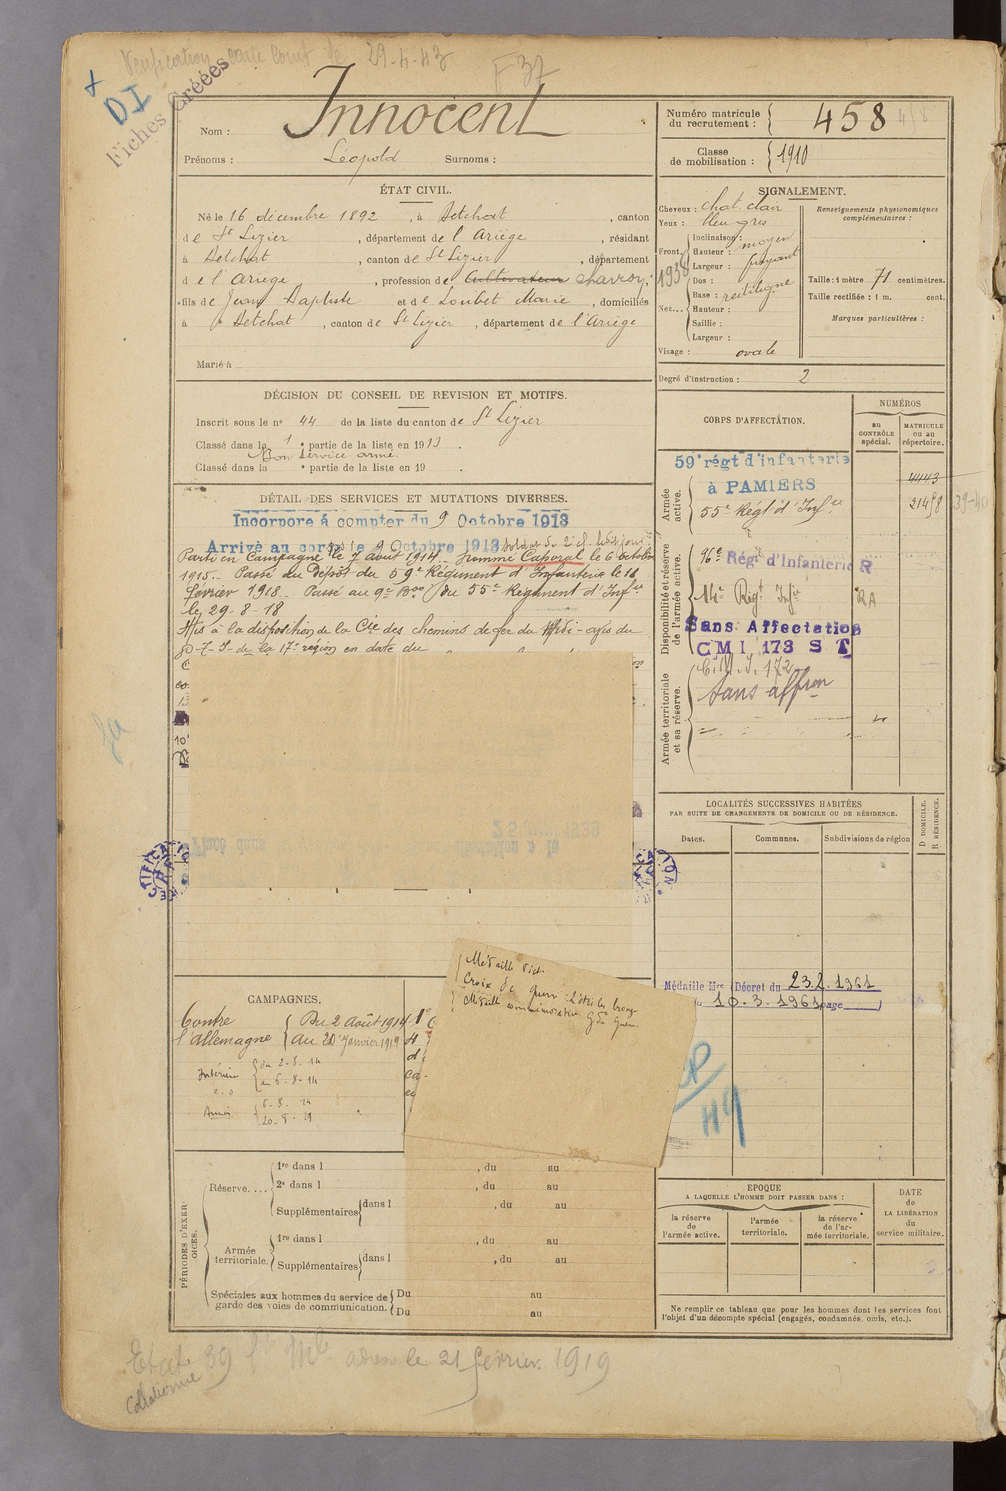 Verification carte Comt le 29-4-43
F 37
+ DI
Fiches Créées
Nom : Innocent
Prénoms : Léopold Surnoms :
Numéro matricule du recrutement : 458
Classe de mobilisation : 1910
ÉTAT CIVIL.
Né le 16 décembre 1892, à Betchat, canton
de St Lizier, département de l'Ariège, résidant
à Betchat, canton de St Lizier, département
de l'Ariège, profession de Cultivateur
fils de Jean Baptiste et de Loubet Marie, domiciliés
à Betchat, canton de St Lizier, département de l'Ariège
Marié à
SIGNALEMENT.
Cheveux : chat. clair
Yeux : bleu gris
Front. Inclinaison : moyen
Hauteur :
Largeur : fuyant
1938
Nez... Dos :
Base : rectiligne
Hauteur :
Saillie :
Largeur :
Visage : ovale
Renseignements physionomiques complémentaires :
Taille : 1 mètre 71 centimètres.
Taille rectifiée : 1 m. cent.
Marques particulières :
Degré d'instruction : 2
DÉCISION DU CONSEIL DE REVISION ET MOTIFS.
Inscrit sous le n° 44 de la liste du canton de St Lizier
Classé dans la 1e partie de la liste en 1913.
Bon Service armé.
Classé dans la e partie de la liste en 19
DÉTAIL DES SERVICES ET MUTATIONS DIVERSES.
Incorporé à compter du 9 Octobre 1913
Arrivé au corps le 9 Octobre 1913 Soldat de 2e cl. ledit jour
Parti en Campagne le 7 août 1914. Nommé Caporal le 6 octobre
1915. Passé au Dépôt du 59e Régiment d'Infanterie le 18
février 1918. Passé au 9e Bon du 55e Régiment d'Infie
le 29-8-18
Mis à la disposition de la Cie des chemins de fer du Midi
de la 17e région en date du
CORPS D'AFFECTATION.
NUMÉROS
au CONTRÔLE spécial.
MATRICULE ou au répertoire.
Armée active.
59e régt d'infanterie
à PAMIERS
4443
55e Régt d'Infie
21498
39-40
Disponibilité et réserve de l'armée active.
96e Régt d'Infanterie R
14e Régt Infie RA
Sans Affectation
CMI 173 ST
Armée territoriale et sa réserve.
C.M.I. 172
Sans affion
25 1939
Placé dans
LOCALITÉS SUCCESSIVES HABITÉES
PAR SUITE DE CHANGEMENTS DE DOMICILE OU DE RÉSIDENCE.
Dates.
Communes.
Subdivisions de région
D DOMICILE.
R RÉSIDENCE.
Médaille Mre (Décret du 23.2.1961
10.3.1961 page )
Médaille Vict
Croix de guerre Etoile bronze
Médaille commémorative Gde guerre
CAMPAGNES.
Contre l'allemagne
Du 2 août 1914
au 20 Janvier 1919
Intérieur
du 2-8-14
au 6-8-14
Armées
H9
PÉRIODES D'EXERCICES.
Réserve....
1re dans l , du au
2e dans l , du au
Supplémentaires dans l , du au
Armée territoriale.
1re dans l , du au
Supplémentaires dans l , du au
Spéciales aux hommes du service de garde des voies de communication.
Du au
Du au
EPOQUE
A LAQUELLE L'HOMME DOIT PASSER DANS :
la réserve de l'armée active.
l'armée territoriale.
la réserve de l'armée territoriale.
DATE de LA LIBÉRATION du service militaire.
Ne remplir ce tableau que pour les hommes dont les services font
l'objet d'un décompte spécial (engagés, condamnés, omis, etc.).
Etat 39 adressé le 21 février 1919
Collationné